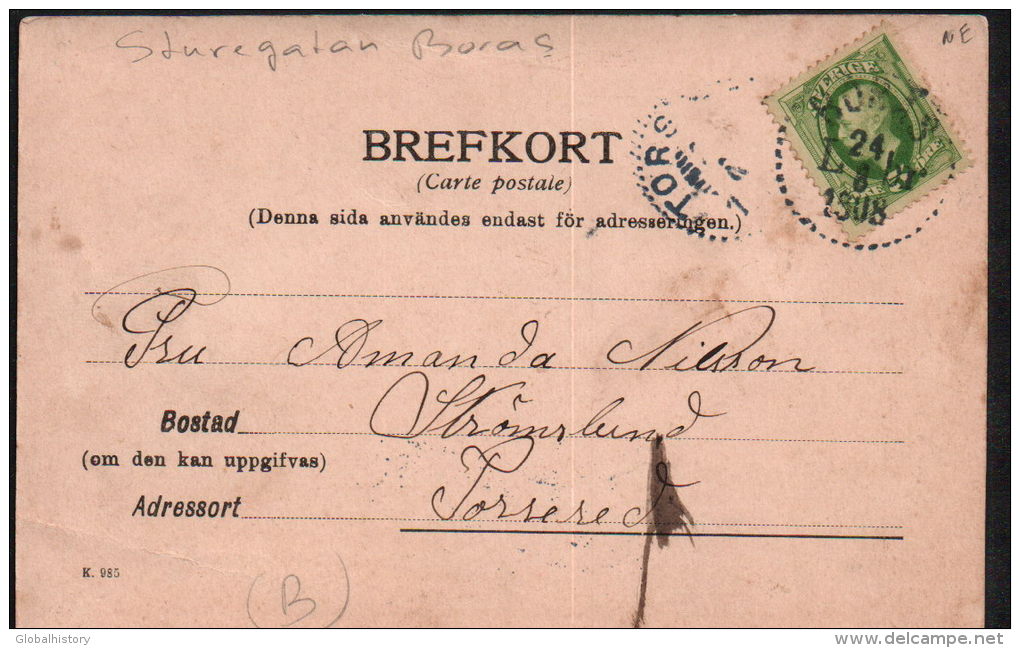 Sturegatan Boras
NE
SVERIGE
24
8
1908
TORS
BREFKORT
(Carte postale)
(Denna sida användes endast för adresseringen.)
Fru Amanda Nilsson
Bostad Strömslund
(om den kan uppgifvas)
Adressort Torsered
K. 985
(B)
Globalhistory
www.delcampe.net